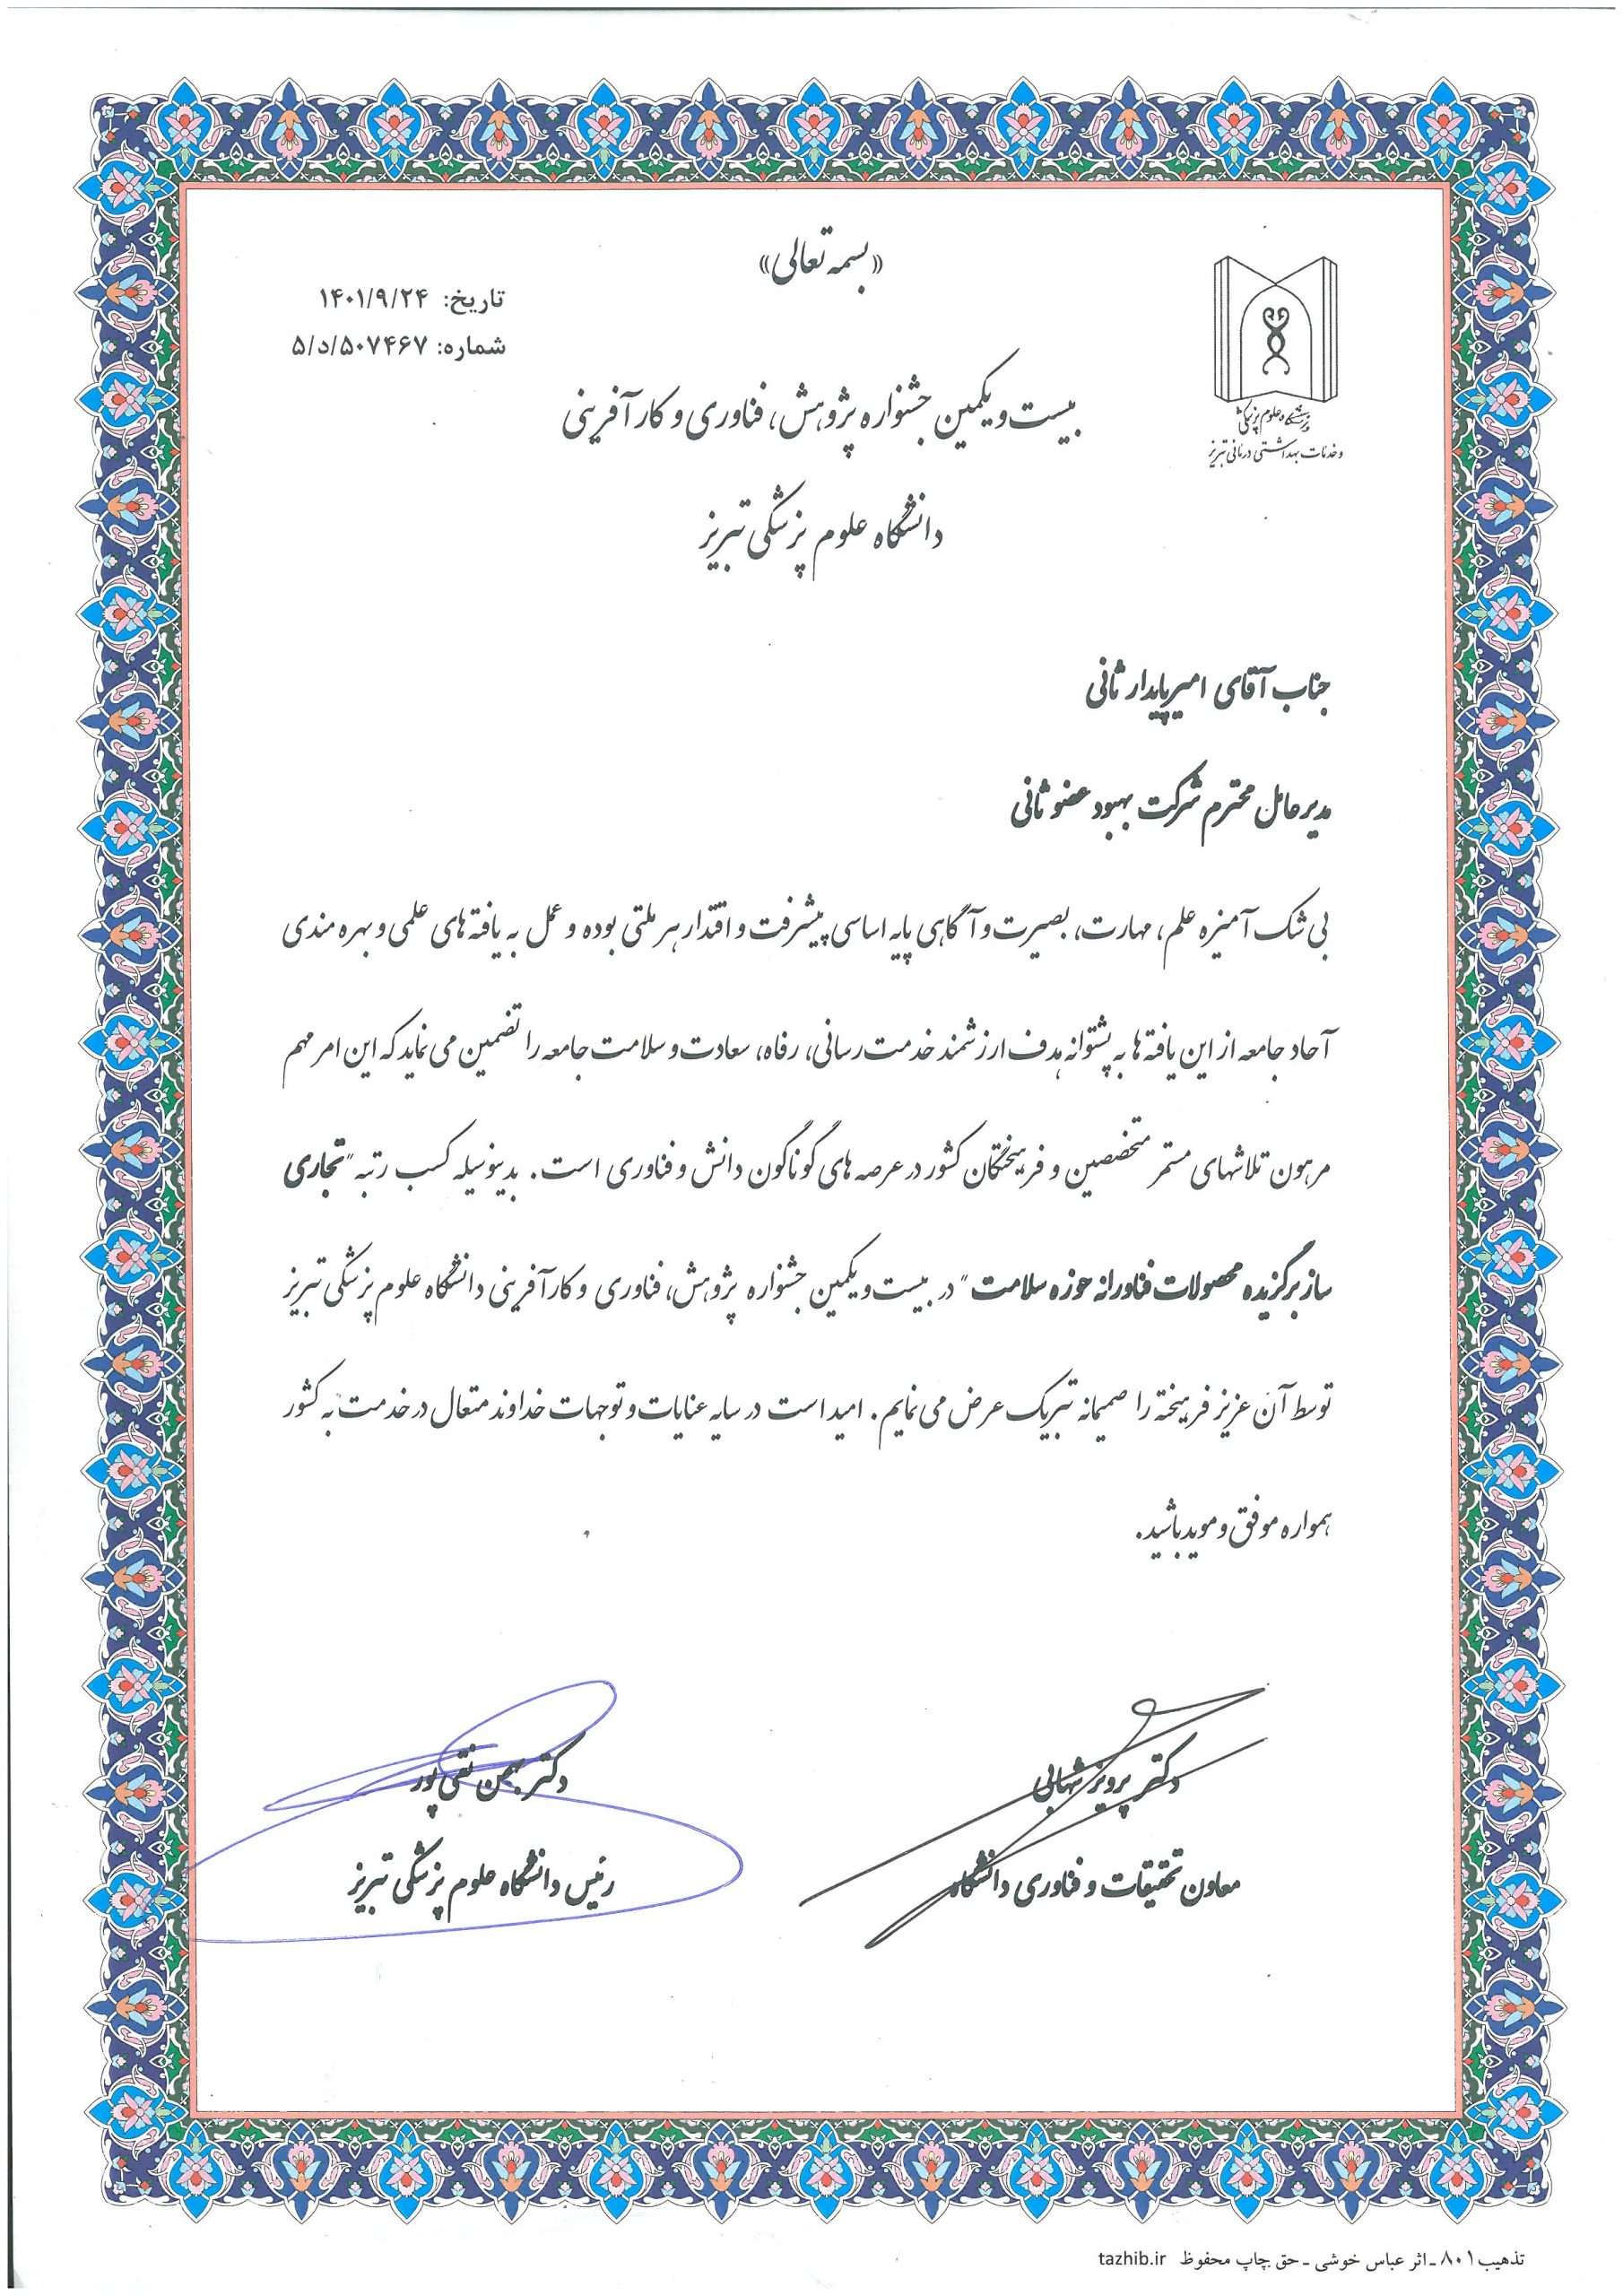 «بسمه تعالی»
تاریخ: ۱۴۰۱/۹/۲۴
شماره: ۵/د/۵۰۷۴۶۷
دانشگاه علوم پزشکی
و خدمات بهداشتی درمانی تبریز
بیست و یکمین جشنواره پژوهش، فناوری و کارآفرینی
دانشگاه علوم پزشکی تبریز
جناب آقای امیر پایدار ثانی
مدیر عامل محترم شرکت بهبود عضو ثانی
بی شک آمیزه علم، مهارت، بصیرت و آگاهی پایه اساسی پیشرفت و اقتدار هر ملتی بوده و عمل به یافته های علمی و بهره مندی
آحاد جامعه از این یافته ها به پشتوانه هدف ارزشمند خدمت رسانی، رفاه، سعادت و سلامت جامعه را تضمین می نماید که این امر مهم
مرهون تلاشهای مستمر متخصصین و فرهیختگان کشور در عرصه های گوناگون دانش و فناوری است. بدینوسیله کسب رتبه "تجاری
ساز برگزیده محصولات فناورانه حوزه سلامت" در بیست و یکمین جشنواره پژوهش، فناوری و کارآفرینی دانشگاه علوم پزشکی تبریز
توسط آن عزیز فرهیخته را صمیمانه تبریک عرض می نمایم. امید است در سایه عنایات و توجهات خداوند متعال در خدمت به کشور
همواره موفق و موید باشید.
دکتر پرویز شهابی
معاون تحقیقات و فناوری دانشگاه
دکتر بهمن نقی پور
رئیس دانشگاه علوم پزشکی تبریز
تذهیب ۸۰۱ - اثر عباس خوشی - حق چاپ محفوظ tazhib.ir